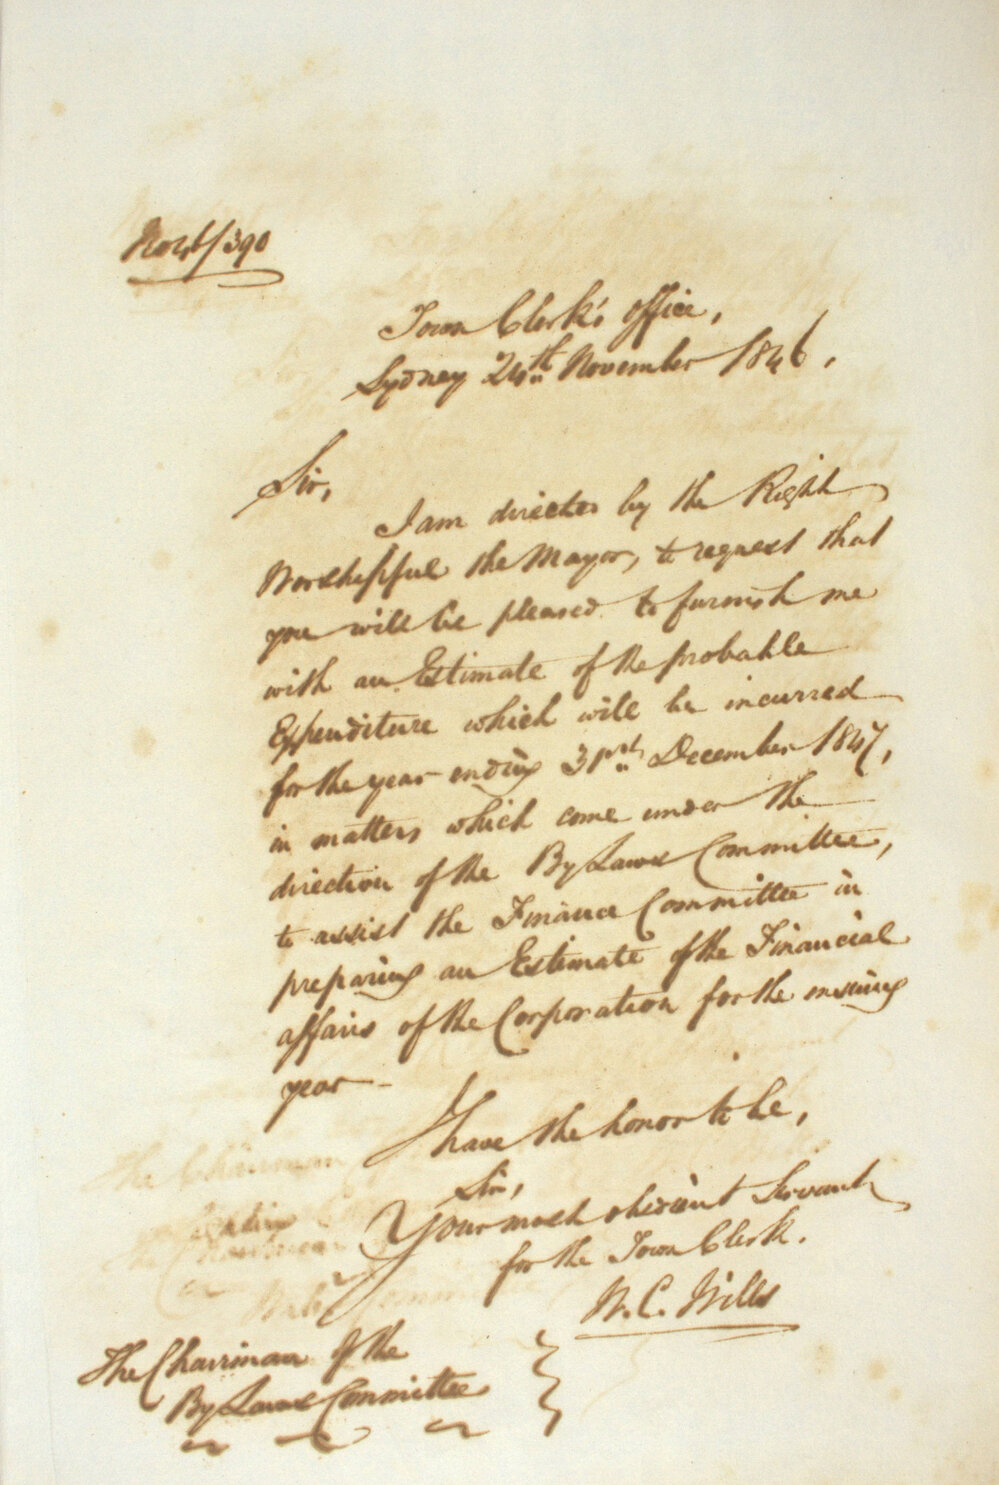 No 46/390
Town Clerk's office,
Sydney 24th November 1846.
Sir,
I am directed by the Right
Worshipful the Mayor, to request that
you will be pleased to furnish me
with an Estimate of the probable
Expenditure which will be incurred
for the year ending 31st December 1847,
in matters which come under the
direction of the By Laws Committee,
to assist the Finance Committee in
preparing an Estimate of the Financial
affairs of the Corporation for the ensuing
year
I have the honor to be,
Sir,
Your most obedient Servant
for the Town Clerk.
W. C. Wills
The Chairman of the
By Laws Committee